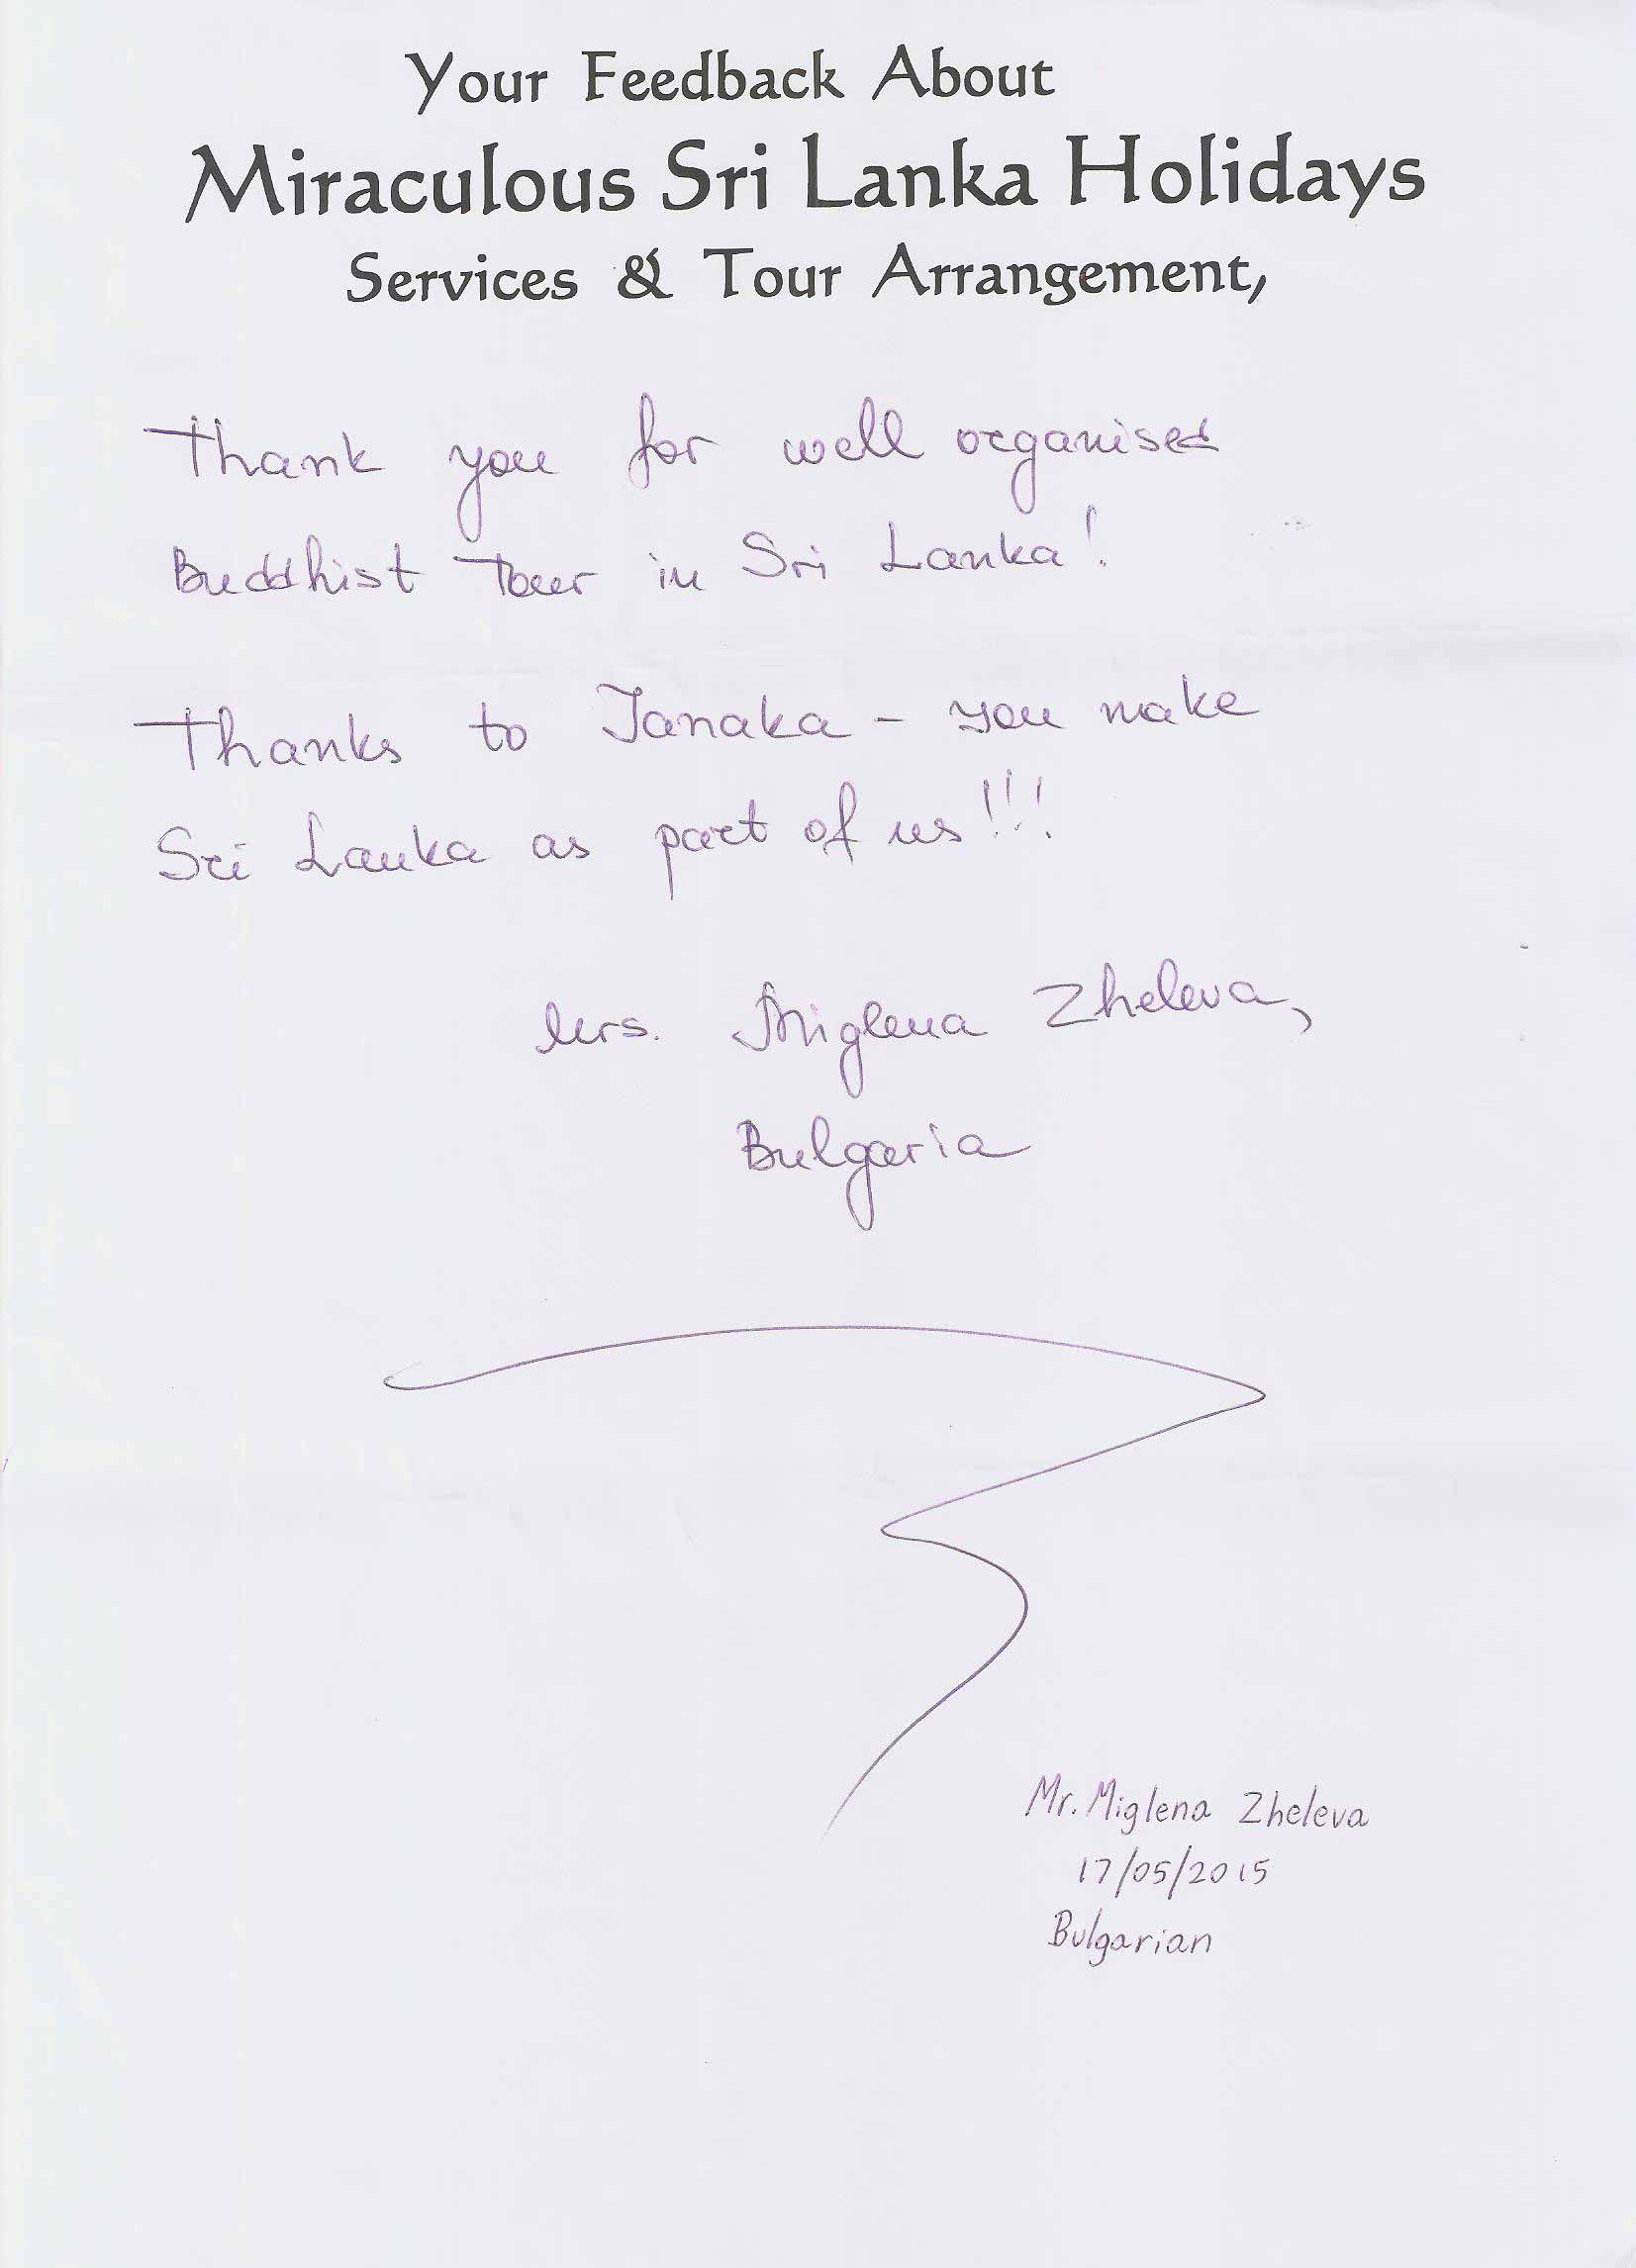 Your Feedback About
Miraculous Sri Lanka Holidays
Services & Tour Arrangement,
Thank you for well organised
Buddhist Tour in Sri Lanka!
Thanks to Janaka - you make
Sri Lanka as part of us!!!
Mrs. Miglena Zheleva,
Bulgaria
Mr. Miglena Zheleva
17/05/2015
Bulgarian